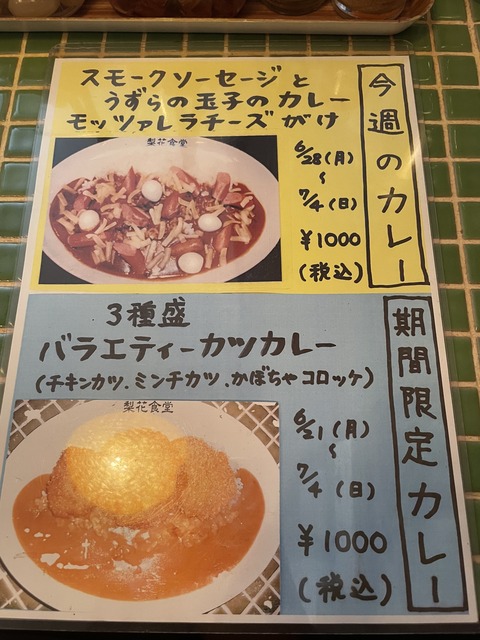 今週のカレー
スモークソーセージと
うずらの玉子のカレー
モッツァレラチーズがけ
梨花食堂
6/28(月)
~
7/4(日)
¥1000
(税込)
期間限定カレー
3種盛
バラエティーカツカレー
(チキンカツ、ミンチカツ、かぼちゃコロッケ)
梨花食堂
6/21(月)
~
7/4(日)
¥1000
(税込)